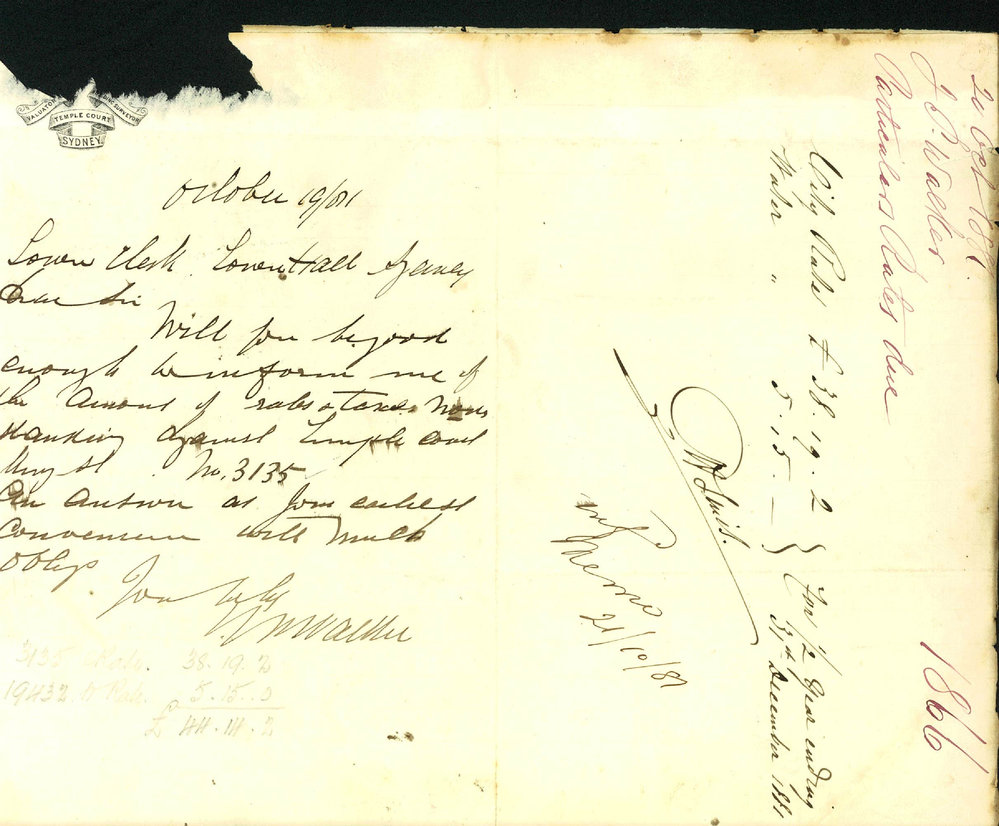 VALUATOR
SURVEYOR
TEMPLE COURT
SYDNEY
October 19/81
Town Clerk Townhall Sydney
Dear Sir
Will you be good
enough to inform me of
the Amount of rates & taxes now
standing against Temple Court
King St No. 3135
An answer at your earliest
convenience will much
oblige
Yours truly
Walker
3135 Rates. 38.19.2
19432. W Rate. 5.15.0
£ 44.14.2
24 Oct 1881.
J. P. Walker
Particulars Rates due
1866
City Rates £38.19.2
Water " 5.15.—
For 1/2 Year ending
31st December 1881
Memo
21/10/81